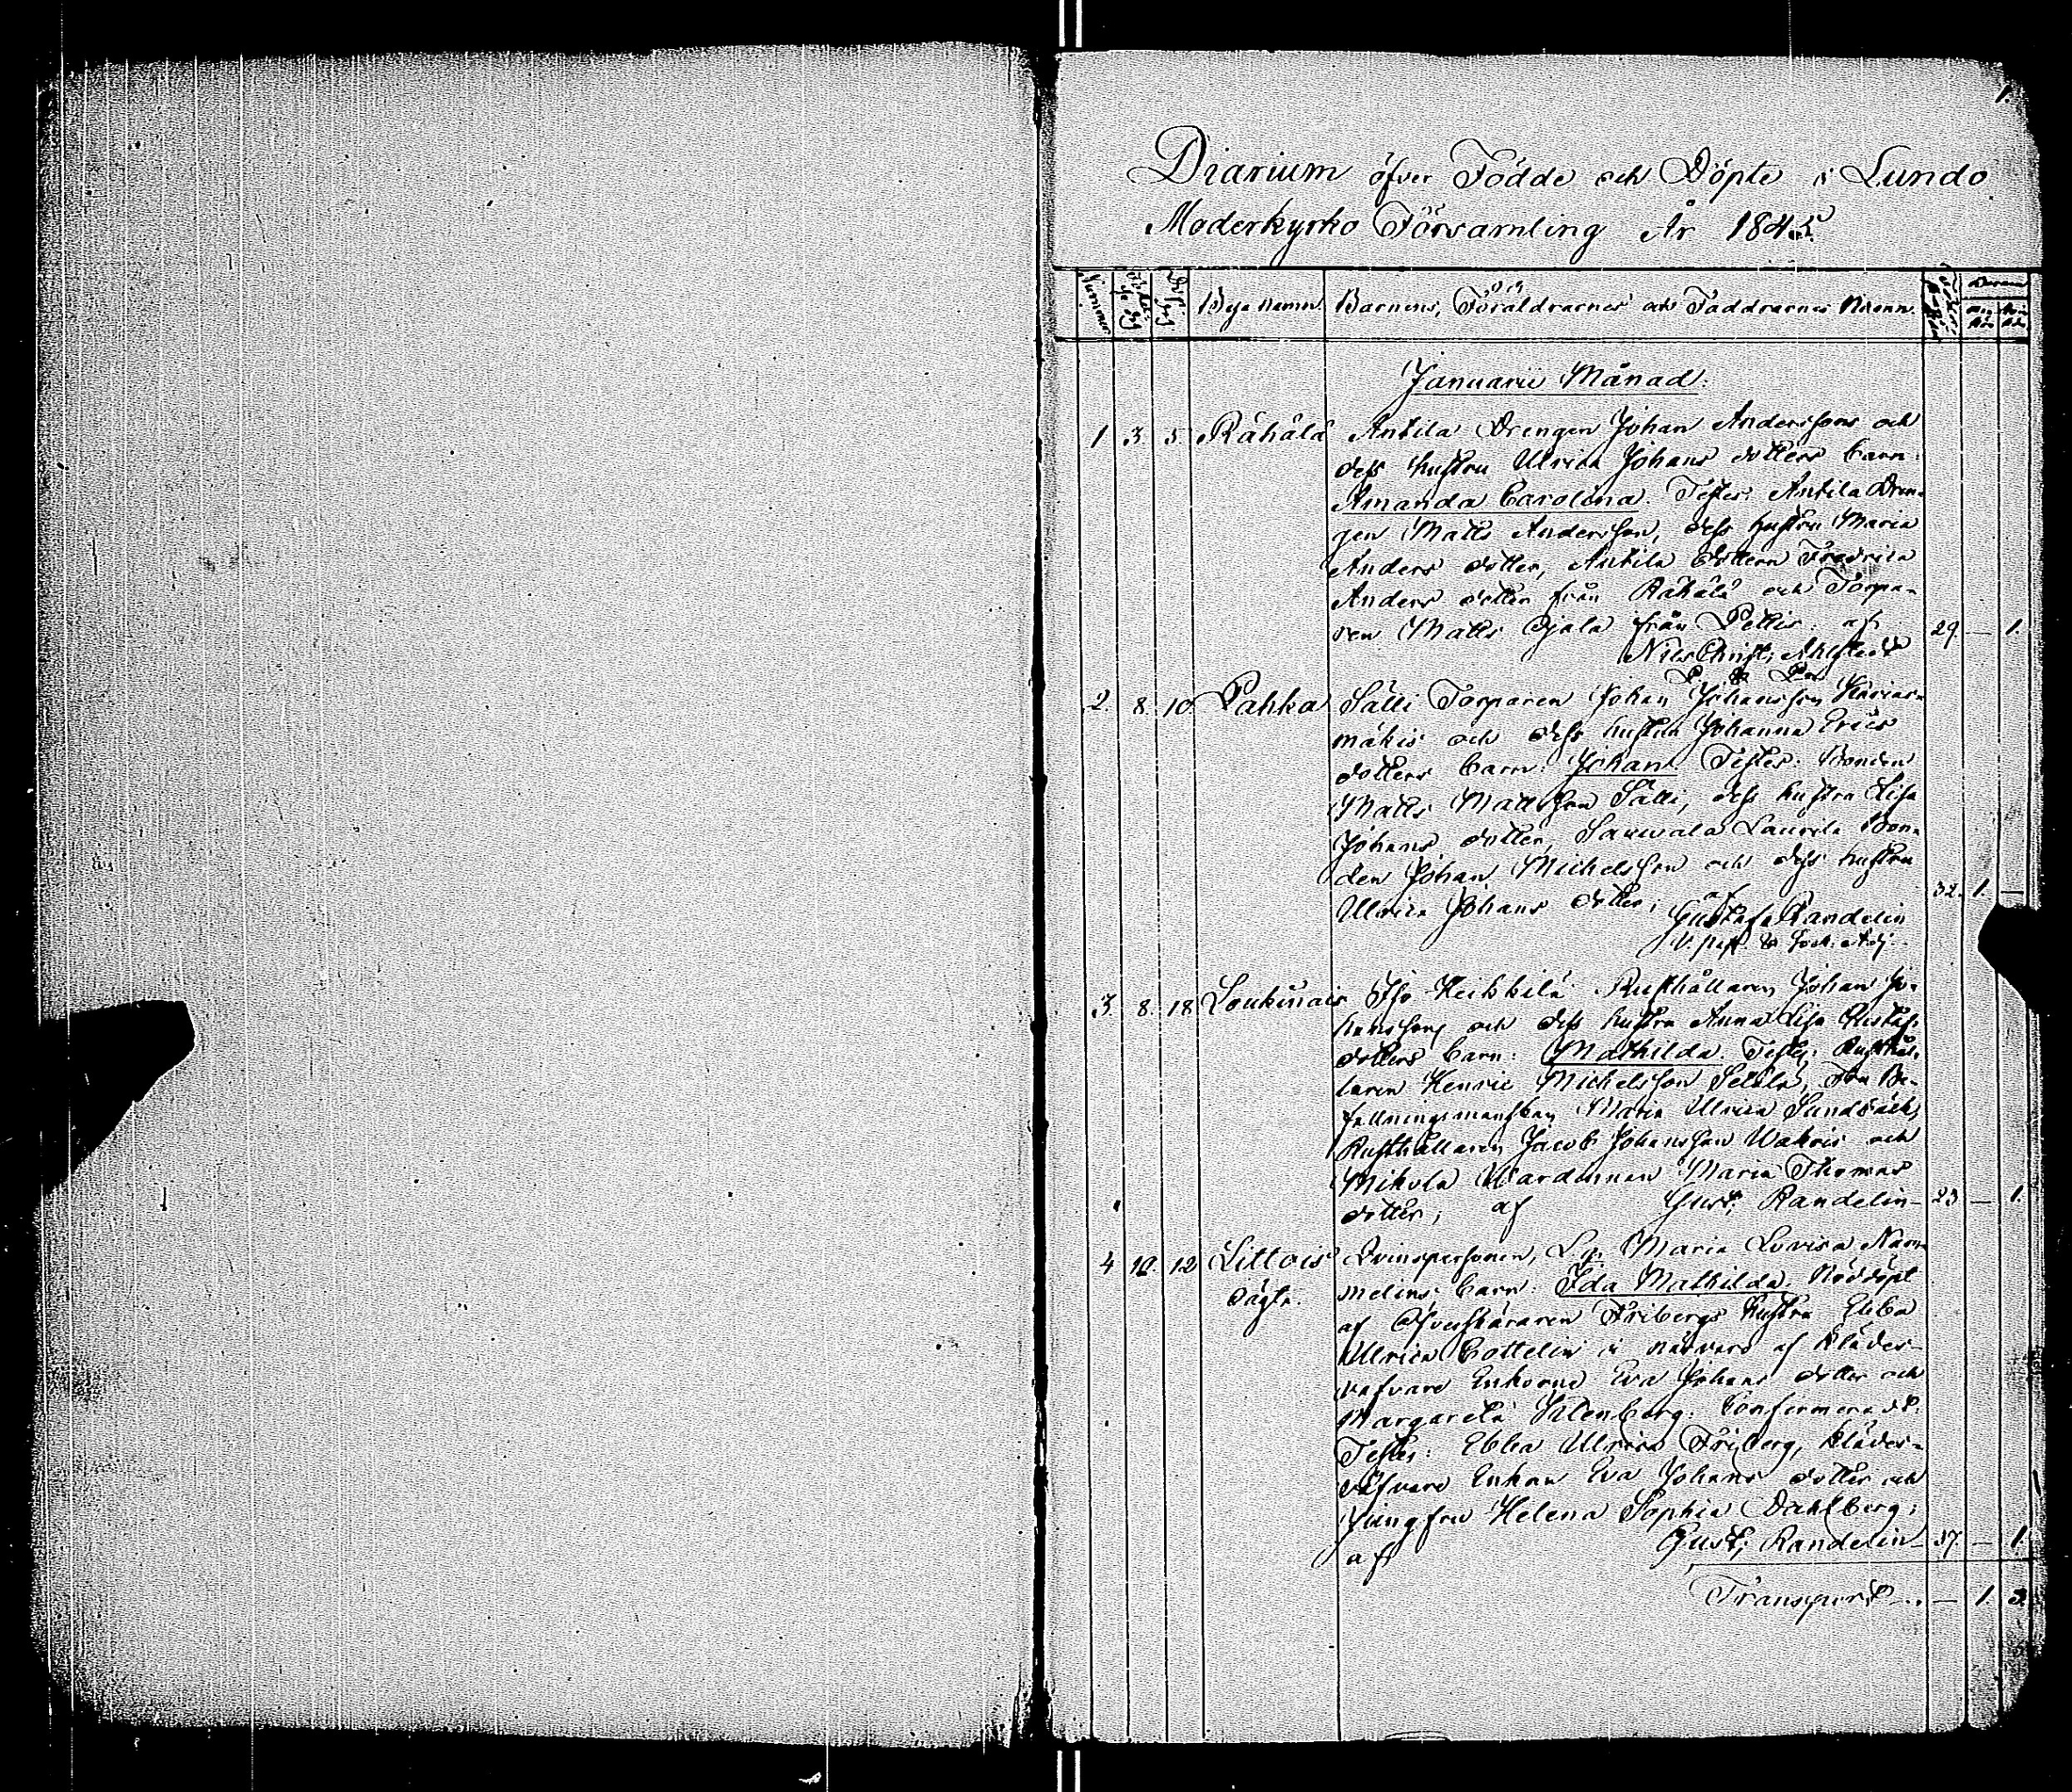 1.
Diarium öfver Födde och Döpte i Lundo
Moderkyrko Församling År 1845
Nummer
Bya namn.
Barnens, Föräldrarnes och Faddrarnes Namn.
Januarii Månad.
1 3. 5. Rähälä Antila Drengen Johan Anderssons och
dess hustru Ulrica Johans dotters barn:
Amanda Carolina. Testes: Antila Dren-
gen Matts Andersson, dess hustru Maria
Anders dotter, Antila dottern Fredrica
Anders dotter från Rähälä och Torpa-
ren Matts Ojala från Pettis. af 29. — 1.
Nils Christ: Ahlstedt
2. 8. 10. Pahka Sälli Torparen Johan Johansson
mäkis och dess hustru Johanna Erics
dotters barn: Johan. Testes: Bonden
Matts Mattsson Sälli, dess hustru Lisa
Johans dotter, Sauwala Laurila Bon-
den Johan Michelsson och dess hustru
Ulrica Johans dotter; af 32. 1. —
Gustaf Randelin
V. past. & Sock. Adj.
3. 8. 18 Loukinais Iso-Heikkilä Rusthållaren Johan Jo-
hansson och dess hustru Anna Lisa Gustafs
dotters barn: Mathilda. Testes: Rusthål-
laren Henric Michelsson Setälä, Fru Be-
fallningsmanskan Maria Ulrica Sundbäck,
Rusthållaren Jacob Johansson Wakois och
Mikola Wärdinnan Maria Thomas
dotter; af Gust: Randelin 23 — 1.
4 10. 12 Littois Qvinspersonen, Maria Lovisa
oägta. melins barn: Ida Mathilda. Nöddöpt
af Öfverskäraren Fribergs hustru Ebba
Ulrica Cottelin i närvaro af Klädes-
väfvare Enkorne Eva Johans dotter och
Margareta Confirmeradt.
Testes: Ebba Ulrica Friberg, Klädes-
väfvare Enkan Eva Johans dotter och
Jungfru Helena Sophia Dahlberg;
af Gust: Randelin 37. — 1.
Transport — 1. 3.